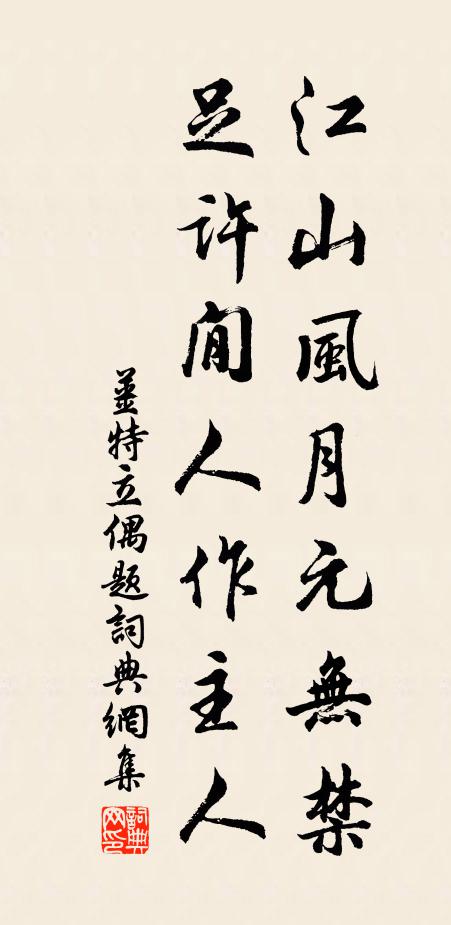 江山風月元無禁
足許閒人作主人
姜特立偶題詞典網集
詞典網印